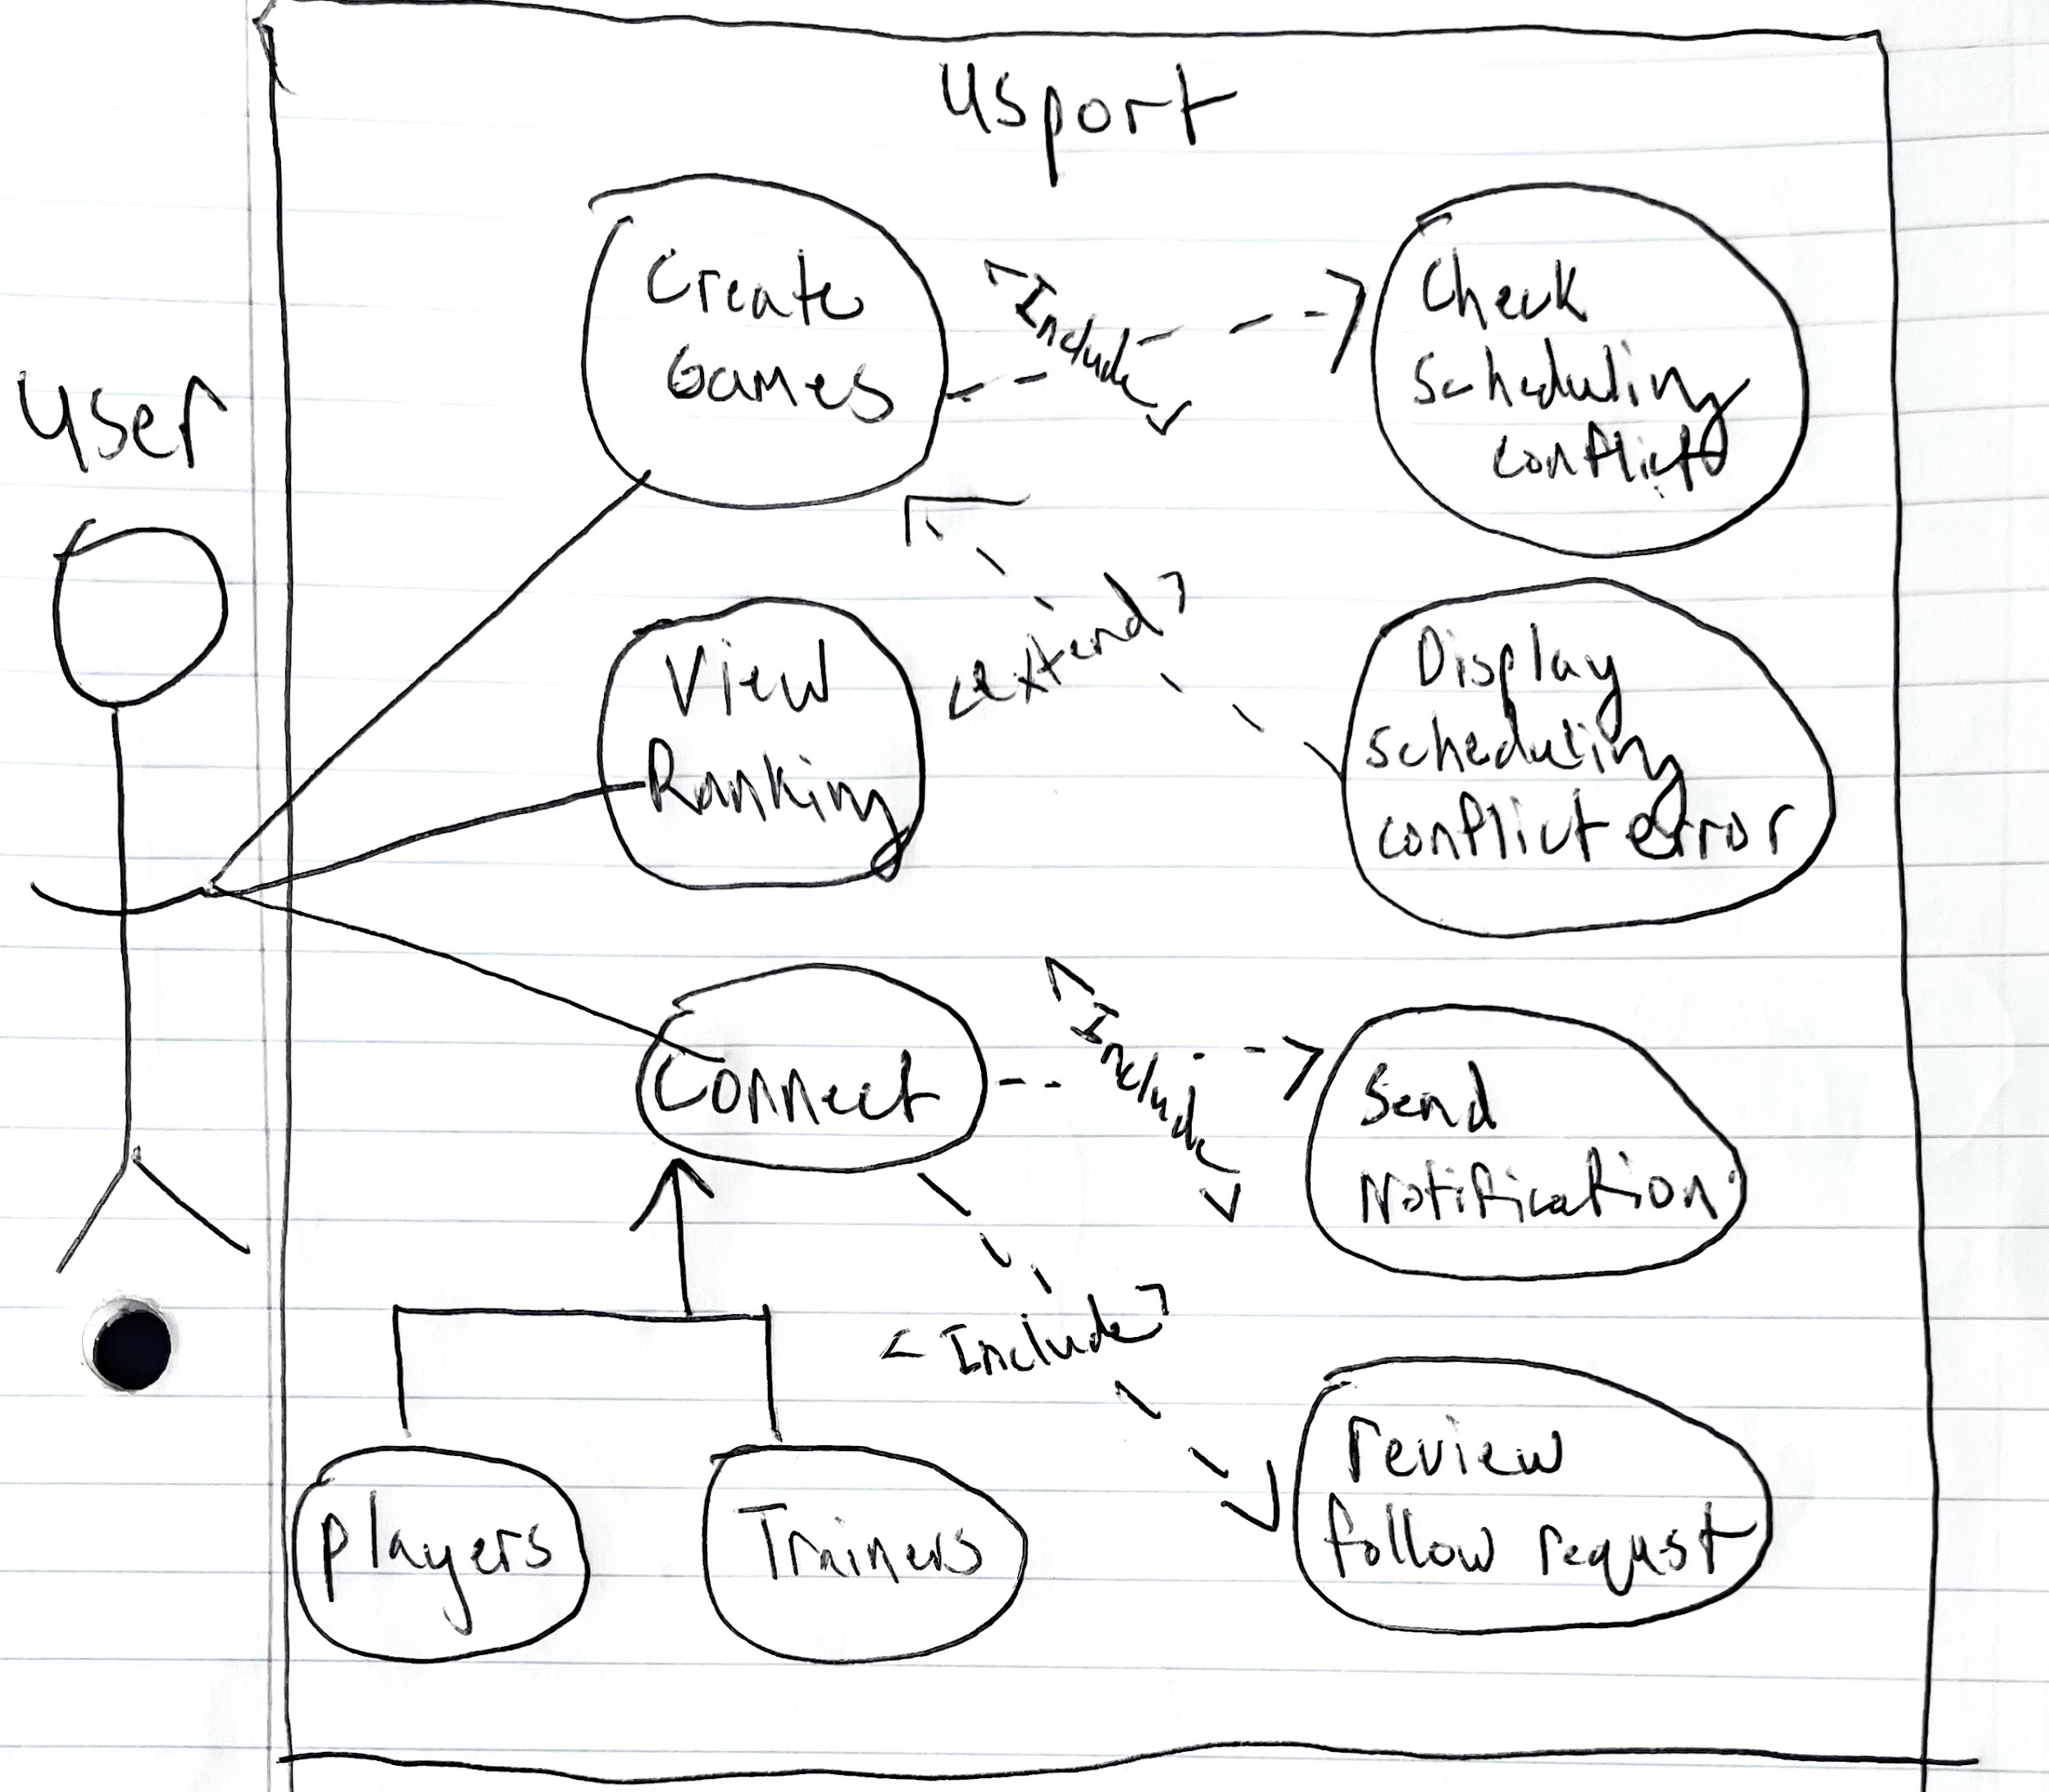 Usport
User
Create
Games
<Include>
Check
scheduling
conflict
View
Ranking
<extend>
Display
scheduling
conflict error
Connect
<Include>
Send
Notification
<Include>
players
Trainers
review
follow requst